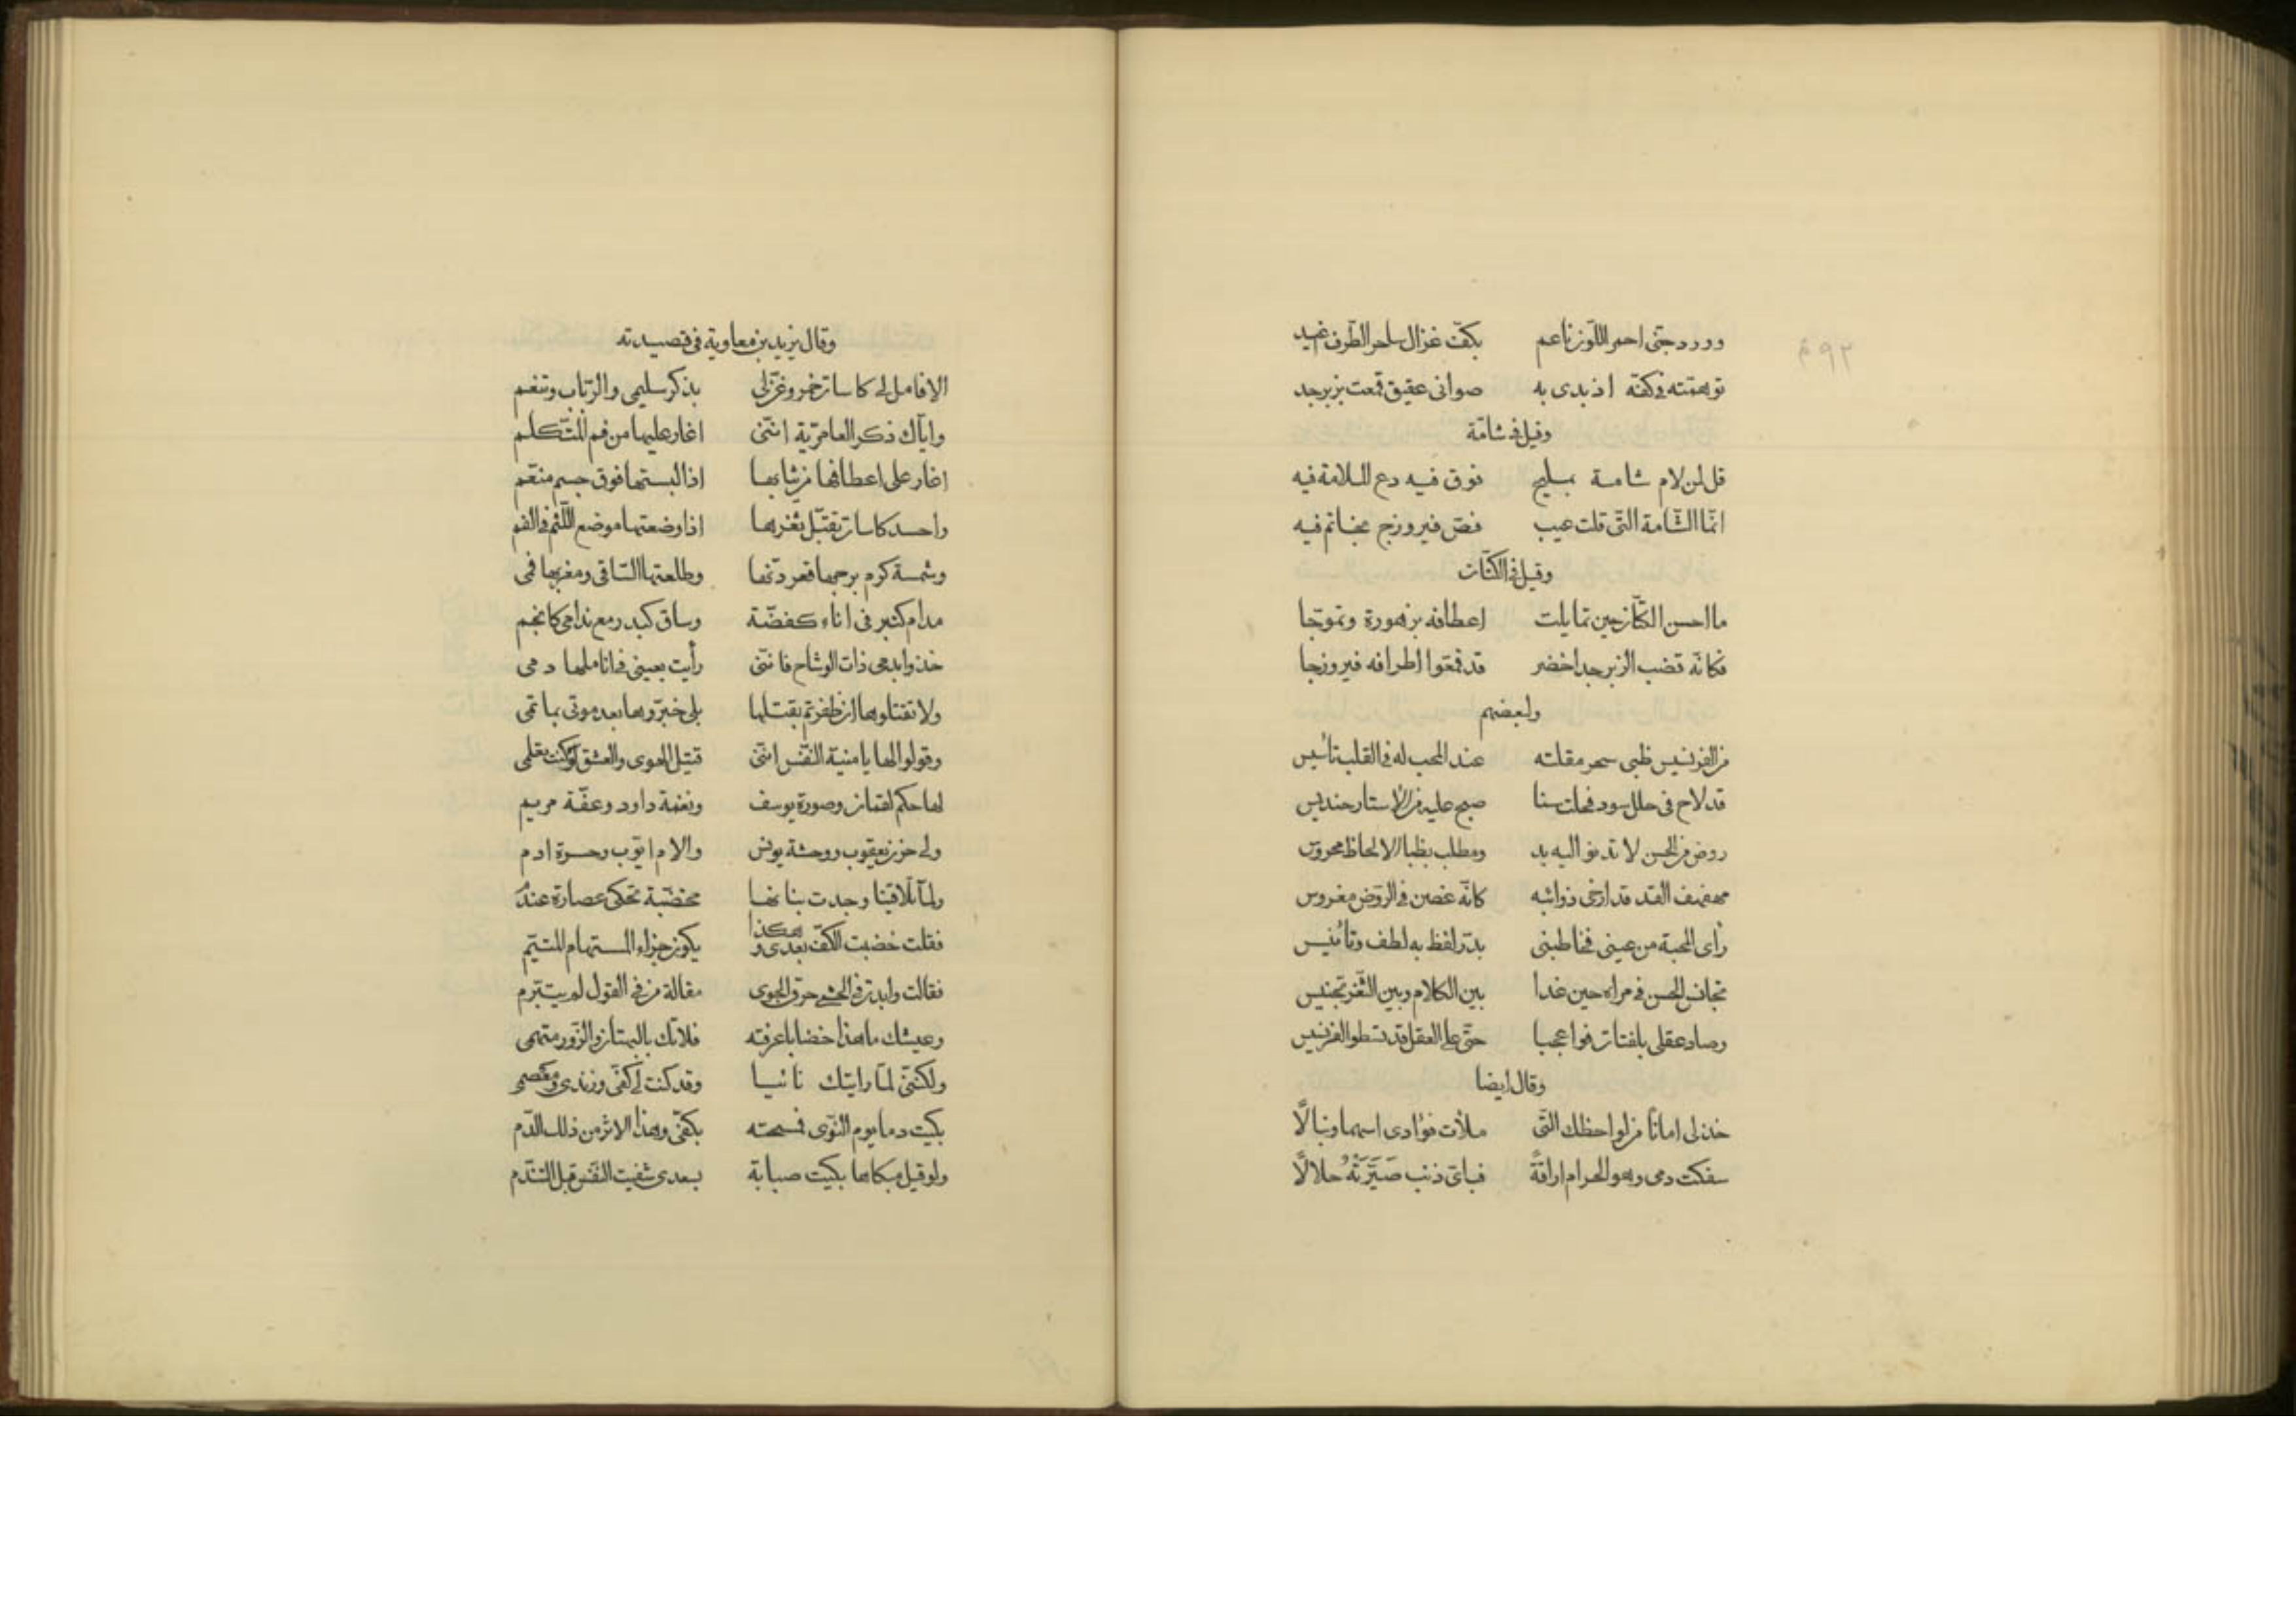 وورد جنى احمر اللّون ناعم بكفّ غزال ساحر الطّرف اغيد
توهمته في كفّه اذ بدى به صوانى عقيق قمعت بزبرجد
وقيل في شامة
قل لمن لام شامة بمليح فوق فيه دع الملامة فيه
انّما الشّامة التّى قلت عيب فصّ فيروزج بخاتم فيه
وقيل في الكتّان
ما احسن الكتّان حين تمايلت اعطافه بزهورة وتموّجا
فكانّه قضب الزبرجد اخضر قد قمّعوا اطرافه فيروزجا
ولبعضهم
من الفرنسيس ظبى سحر مقلته عند المحب له في القلب تأسيس
قد لاح في حلل سود فخلت سنا صبح عليه من الاستار حنديس
روض من الحسن لا تدنو اليه يد ومطلب بظبا الالحاظ محروس
مهفهف القد قد ارخى ذوائبه كانّه غصن في الروض مغروس
رأى المحبة من عينى فخاطبنى بدرّ لفظ به لطف وتأنيس
تجانس الحسن في مراه حين غدا بين الكلام وبين الثّغر تجنيس
وصاد عقلى بلفتات فوا عجبا حتّى على العقل قد تسطو الفرنسيس
وقال ايضا
خذ لى امانًا من لواحظك التّى ملأت فؤادى اسهما ونبالًا
سفكت دمى وهو الحرام اراقةً فباىّ ذنب صَيَّرَتْهُ حلالًا
وقال يزيد بن معاوية في قصيدته
الا فامل لى كاسات خمر وغنّ لى بذكر سليمى والرّباب وتنغم
وايّاك ذكر العامريّة انّنى اغار عليها من فم المتكلم
اغار على اعطافها من ثيابها اذا البستها فوق جسم منعّم
واحسد كاسات تقبّل ثغرها اذا وضعتها موضع اللّثم في الفم
وشمسة كرم برجها قعر دنّها وطلعتها السّاقى ومغربها فمى
مدام كتبر في اناء كفضّة وساق كبدر مع ندامى كانجم
خذوا بدمى ذات الوشاح فانّنى رأيت بعينى في اناملها دمى
ولا تقتلوها ان ظفرتم بقتلها بلى خبّروها بعد موتى بماتمى
وقولوا لها يا منية النّفس انّنى قتيل الهوى والعشق لو كنت تعلمى
لها حكم لقمان وصورة يوسف ونغمة داود وعفّة مريم
ولى حزن يعقوب ووحشة يونس والام ايّوب وحسرة ادم
ولمّا تلاقينا وجدت بنانها مخضّبة تحكى عصارة عندم
فقلت خضبت الكفّ بعدى وهكذا يكون جزاء المستهام المتيّم
فقالت وابدت في الحشى حرق الجوى مقالة من في القول لم يتبرّم
وعيشك ما هذا خضابا عرفته فلا تك بالبهتان والزّور متهمى
ولكنّنى لمّا رايتك نائيا وقد كنت لى كفّى وزندى ومعصمى
بكيت دما يوم النّوى فمسحته بكفّى وهذا الاثر من ذلك الدّم
ولو قبل مبكاها بكيت صبابة بسعدى شفيت النّفس قبل التّندّم